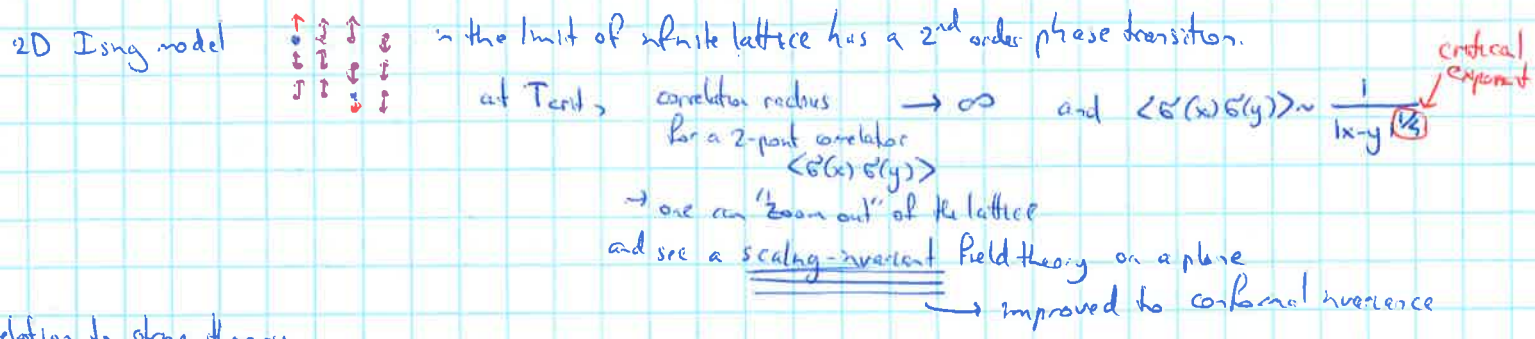 2D Ising model in the limit of infinite lattice has a 2nd order phase transition.
at Tcrit, correlation radius → ∞ and <σ(x)σ(y)> ~ 1/|x-y|^1/4 critical exponent
for a 2-point correlator
<σ(x)σ(y)>
→ one can "zoom out" of the lattice
and see a scaling-invariant field theory on a plane
→ improved to conformal invariance